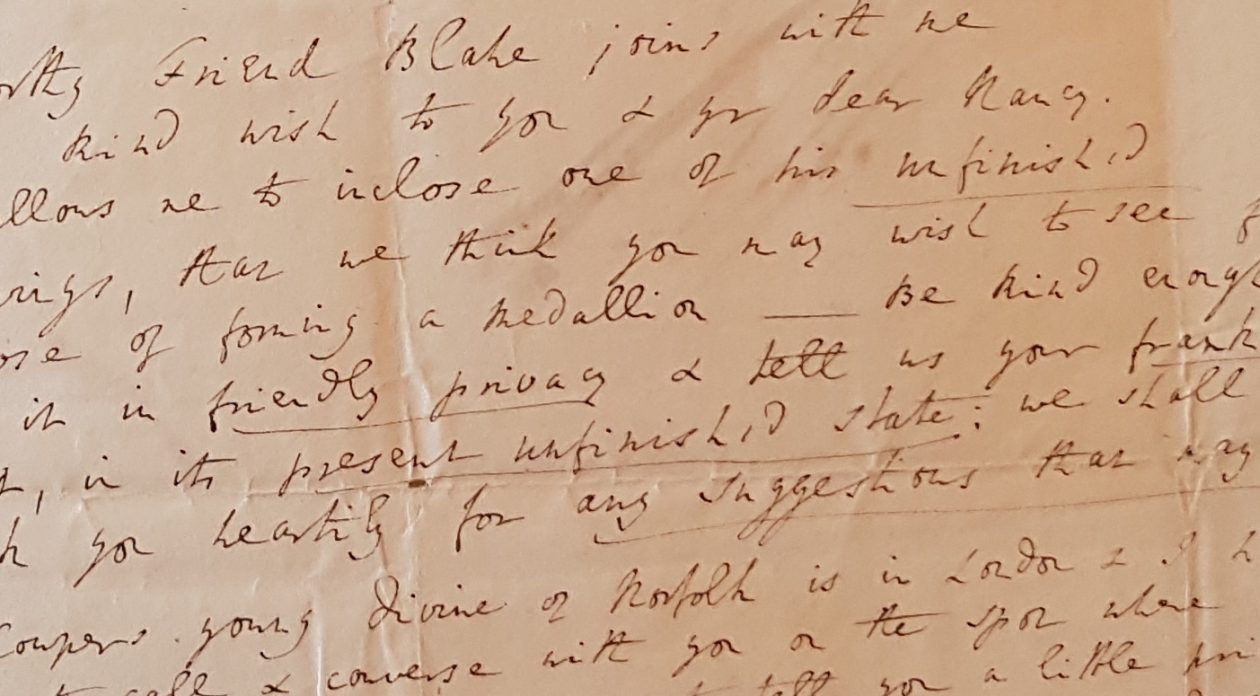 Friend Blake joins with me
kind wish to you & yr dear Nancy.
me to inclose one of his unfinish'd
that we think you may wish to see
of forming a Medallion — Be kind
it in friendly privacy & tell us your frank
, in its present unfinish'd state: we shall
you heartily for any suggestions that may
Cowpers young Divine of Norfolk is in London & I
call & converse with you on the spot where
tell you a little